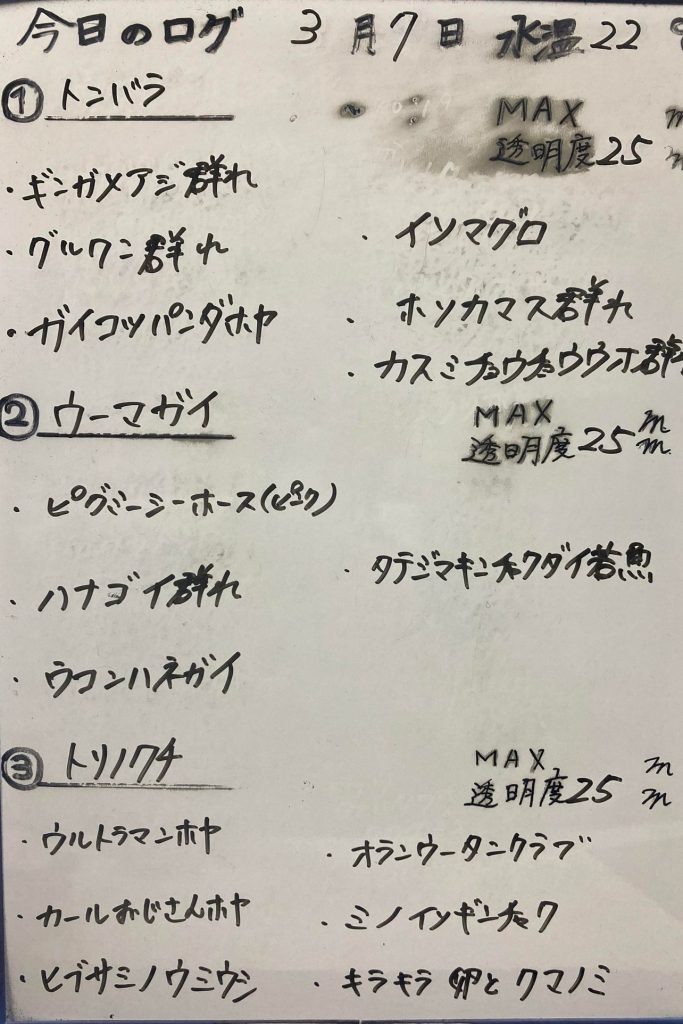 今日のログ 3月7日 水温22℃
① トンバラ
MAX m
透明度25m
・ギンガメアジ群れ
・イソマグロ
・グルクン群れ
・ホソカマス群れ
・ガイコツパンダホヤ
・カスミチョウチョウウオ群れ
② ウーマガイ
MAX m
透明度25m
・ピグミーシーホース(ピンク)
・タテジマキンチャクダイ若魚
・ハナゴイ群れ
・ウコンハネガイ
③ トリノクチ
MAX m
透明度25m
・ウルトラマンホヤ
・オランウータンクラブ
・カールおじさんホヤ
・ミノイソギンチャク
・ヒブサミノウミウシ
・キラキラ卵とクマノミ